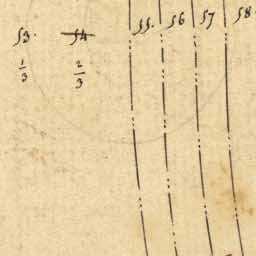 53. 54 55. 56 57 58.
1/3 2/3